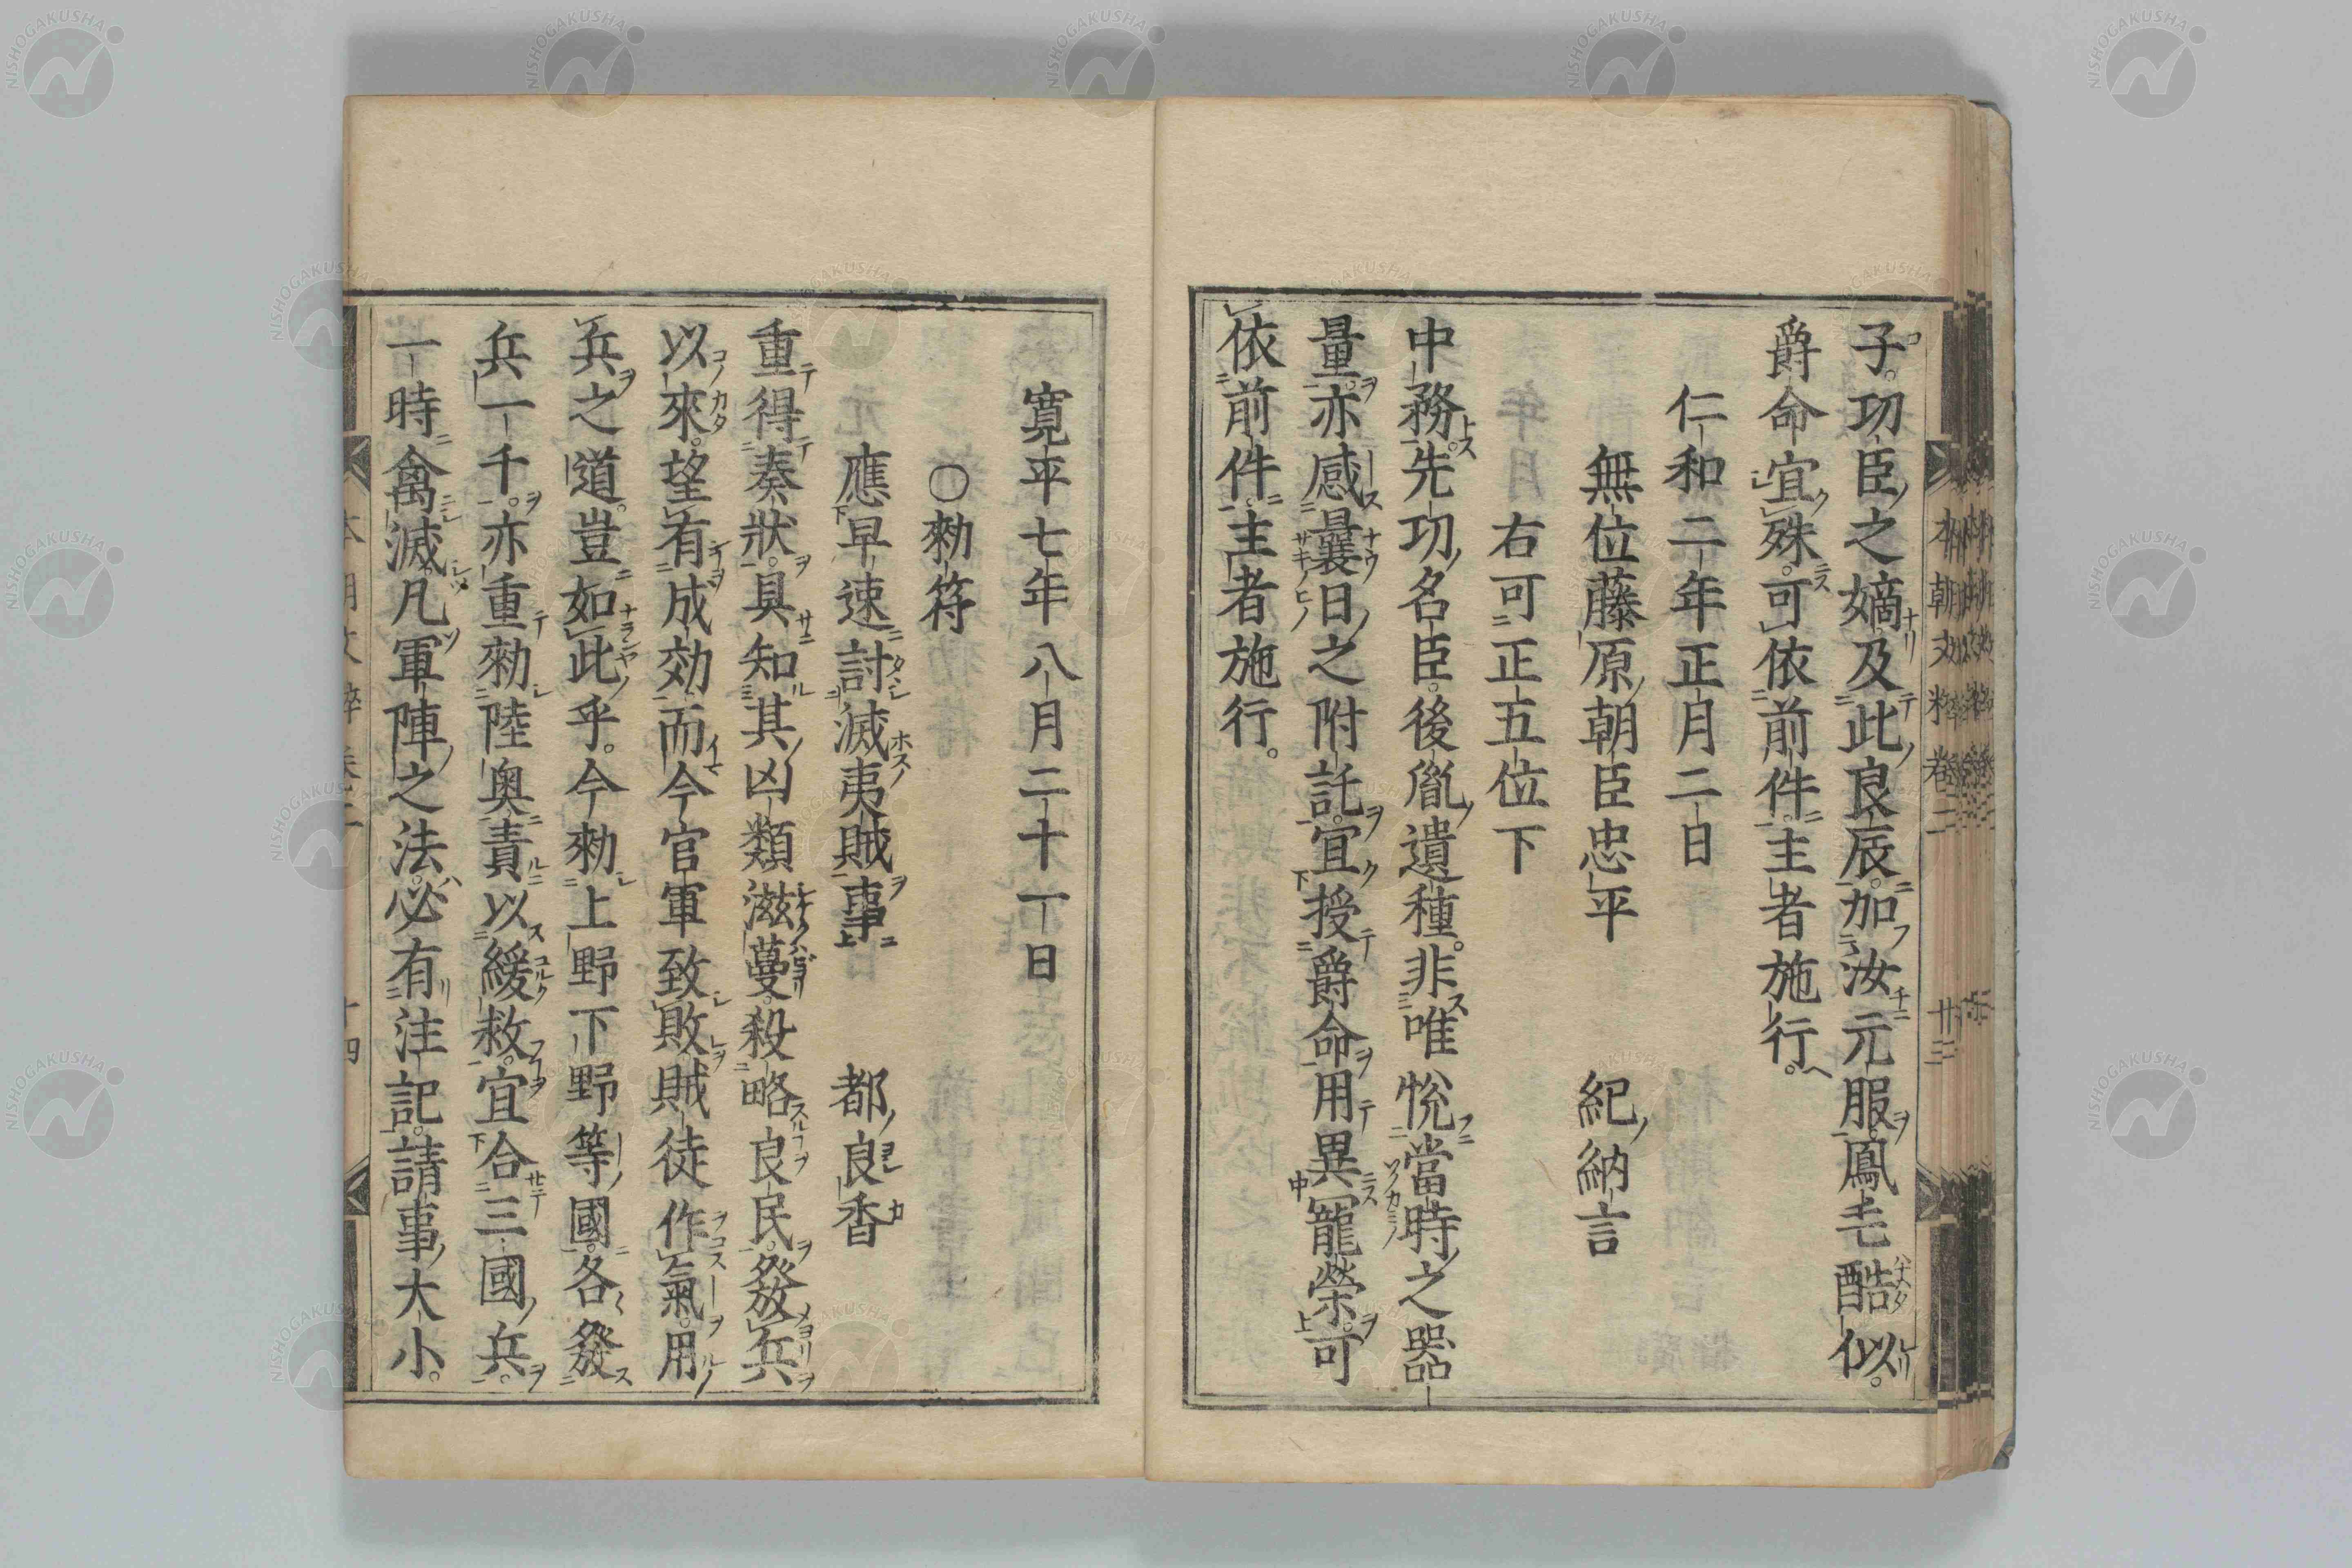 子。功臣之嫡。及此良辰。加汝元服。鳳毛酷似。
爵命宜殊。可依前件。主者施行。
仁和二年正月二日
無位藤原朝臣忠平　紀納言
右可正五位下
中務。先功名臣。後胤遺種。非唯悅當時之器
量。亦感曩日之附託。宜授爵命用異寵榮。可
依前件。主者施行。
寛平七年八月二十一日
○勅符
應早速討滅夷賊事　都良香
重得奏狀。具知其凶類滋蔓。殺略良民。發兵
以來。望有成効。而今官軍致敗賊徒作氣。用
兵之道。豈如此乎。今勅上野下野等國。各發
兵一千。亦重勅陸奥責以緩救。宜合三國兵。
一時禽滅。凡軍陣之法。必有注記。請事大小。
本朝文粹卷二
廿三
NISHOGAKUSHA